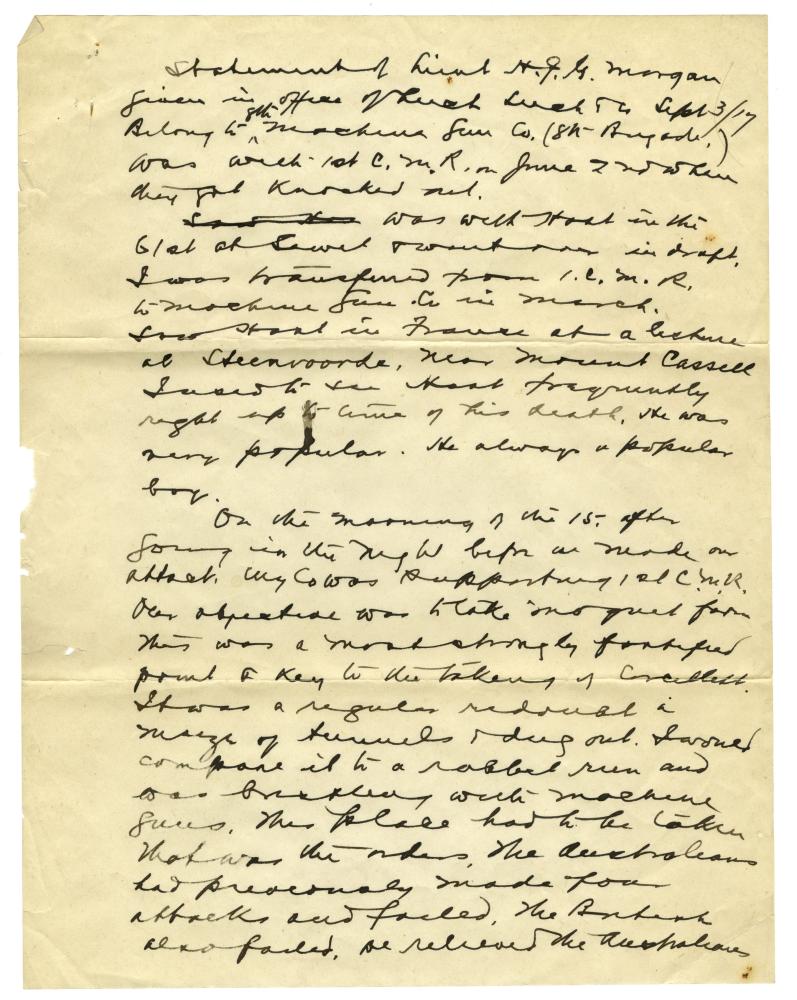 Statement of Lieut H.G.G. Morgan
given in office of Sept 3/17
Belong to 8th Machine Gun Co. (8th Brigade.)
was with 1st C.M.R. on June 2nd when
they got Knocked out.
was with Hoat in the
61st at Sewel & went over in draft.
I was transferred from 1.C.M.R.
to machine Gun Co in March.
Saw Hoat in France at a lecture
at Steenvoorde, near Mount Cassell
I used to see Hoat frequently
right up to time of his death. He was
very popular. He always a popular
boy.
On the morning of the 15. after
going in the night before we made our
attack. My Co was supporting 1st C.M.R.
Our objective was to take Moquet farm
This was a most strongly fortified
point & Key to the taking of Corcellett.
It was a regular redoubt a
maize of tunnels & dug out. I would
compare it to a rabbet run and
was bristling with machine
guns. This place had to be taken
that was the orders. The Australians
had previously made four
attacks and failed. The British
also failed. We relieved the Australians